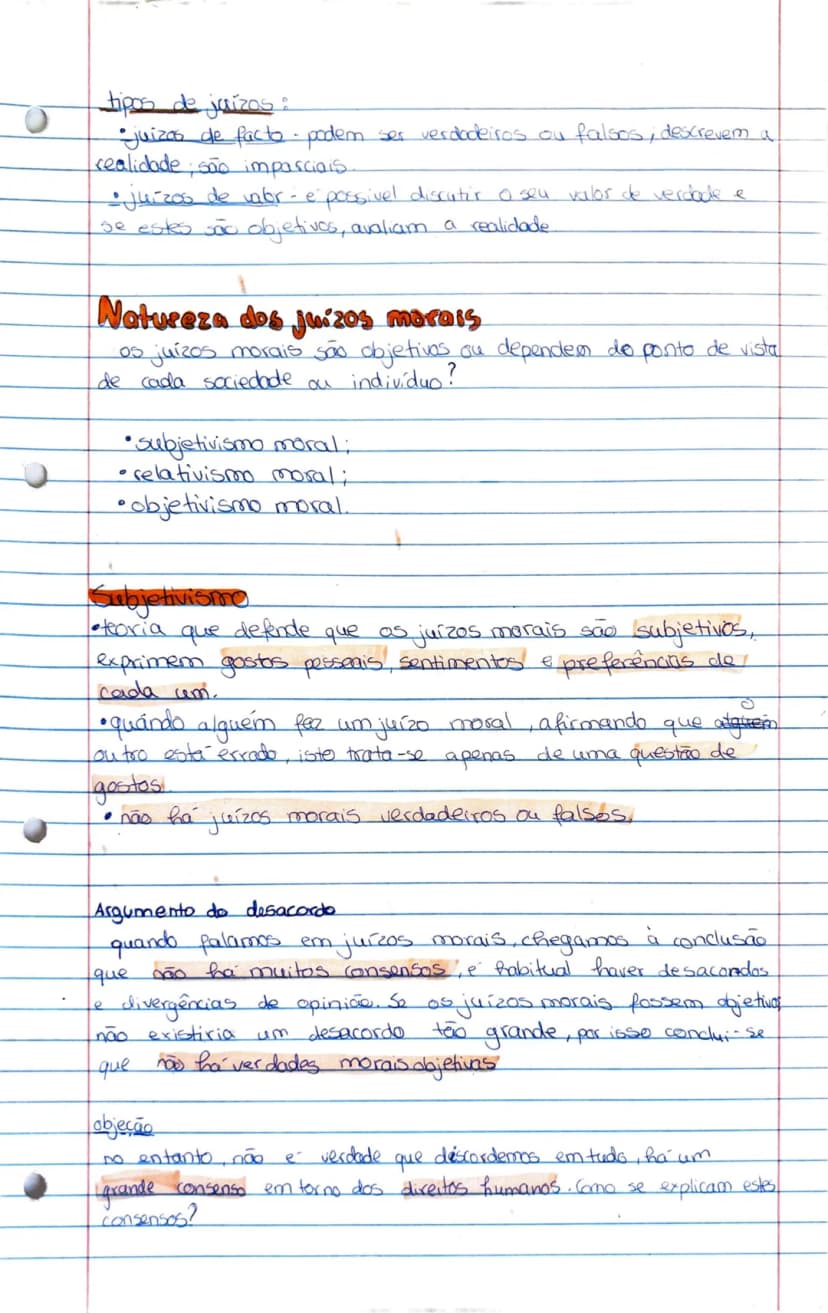 tipos de juízos:
• juízos de facto - podem ser verdadeiros ou falsos, descrevem a
realidade; são imparciais.
• juízos de valor - é possível discutir o seu valor de verdade e
se estes são objetivos, avaliam a realidade
Natureza dos juízos morais
os juízos morais são objetivos ou dependem do ponto de vista
de cada sociedade ou indivíduo?
• subjetivismo moral;
• relativismo moral;
• objetivismo moral.
Subjetivismo
• teoria que defende que os juízos morais são subjetivos,
exprimem gostos pessoais, sentimentos e preferências de
cada um.
• quando alguém faz um juízo moral, afirmando que o
outro está errado, isto trata-se apenas de uma questão de
gostos.
• não há juízos morais verdadeiros ou falsos.
Argumento do desacordo
quando falamos em juízos morais, chegamos à conclusão
que não há muitos consensos, é habitual haver desacordos
e divergências de opinião. Se os juízos morais fossem objetivos
não existiria um desacordo tão grande, por isso conclui-se
que não há verdades morais objetivas
objeção
no entanto, não é verdade que discordemos em tudo, há um
grande consenso em torno dos direitos humanos. Como se explicam estes
consensos?